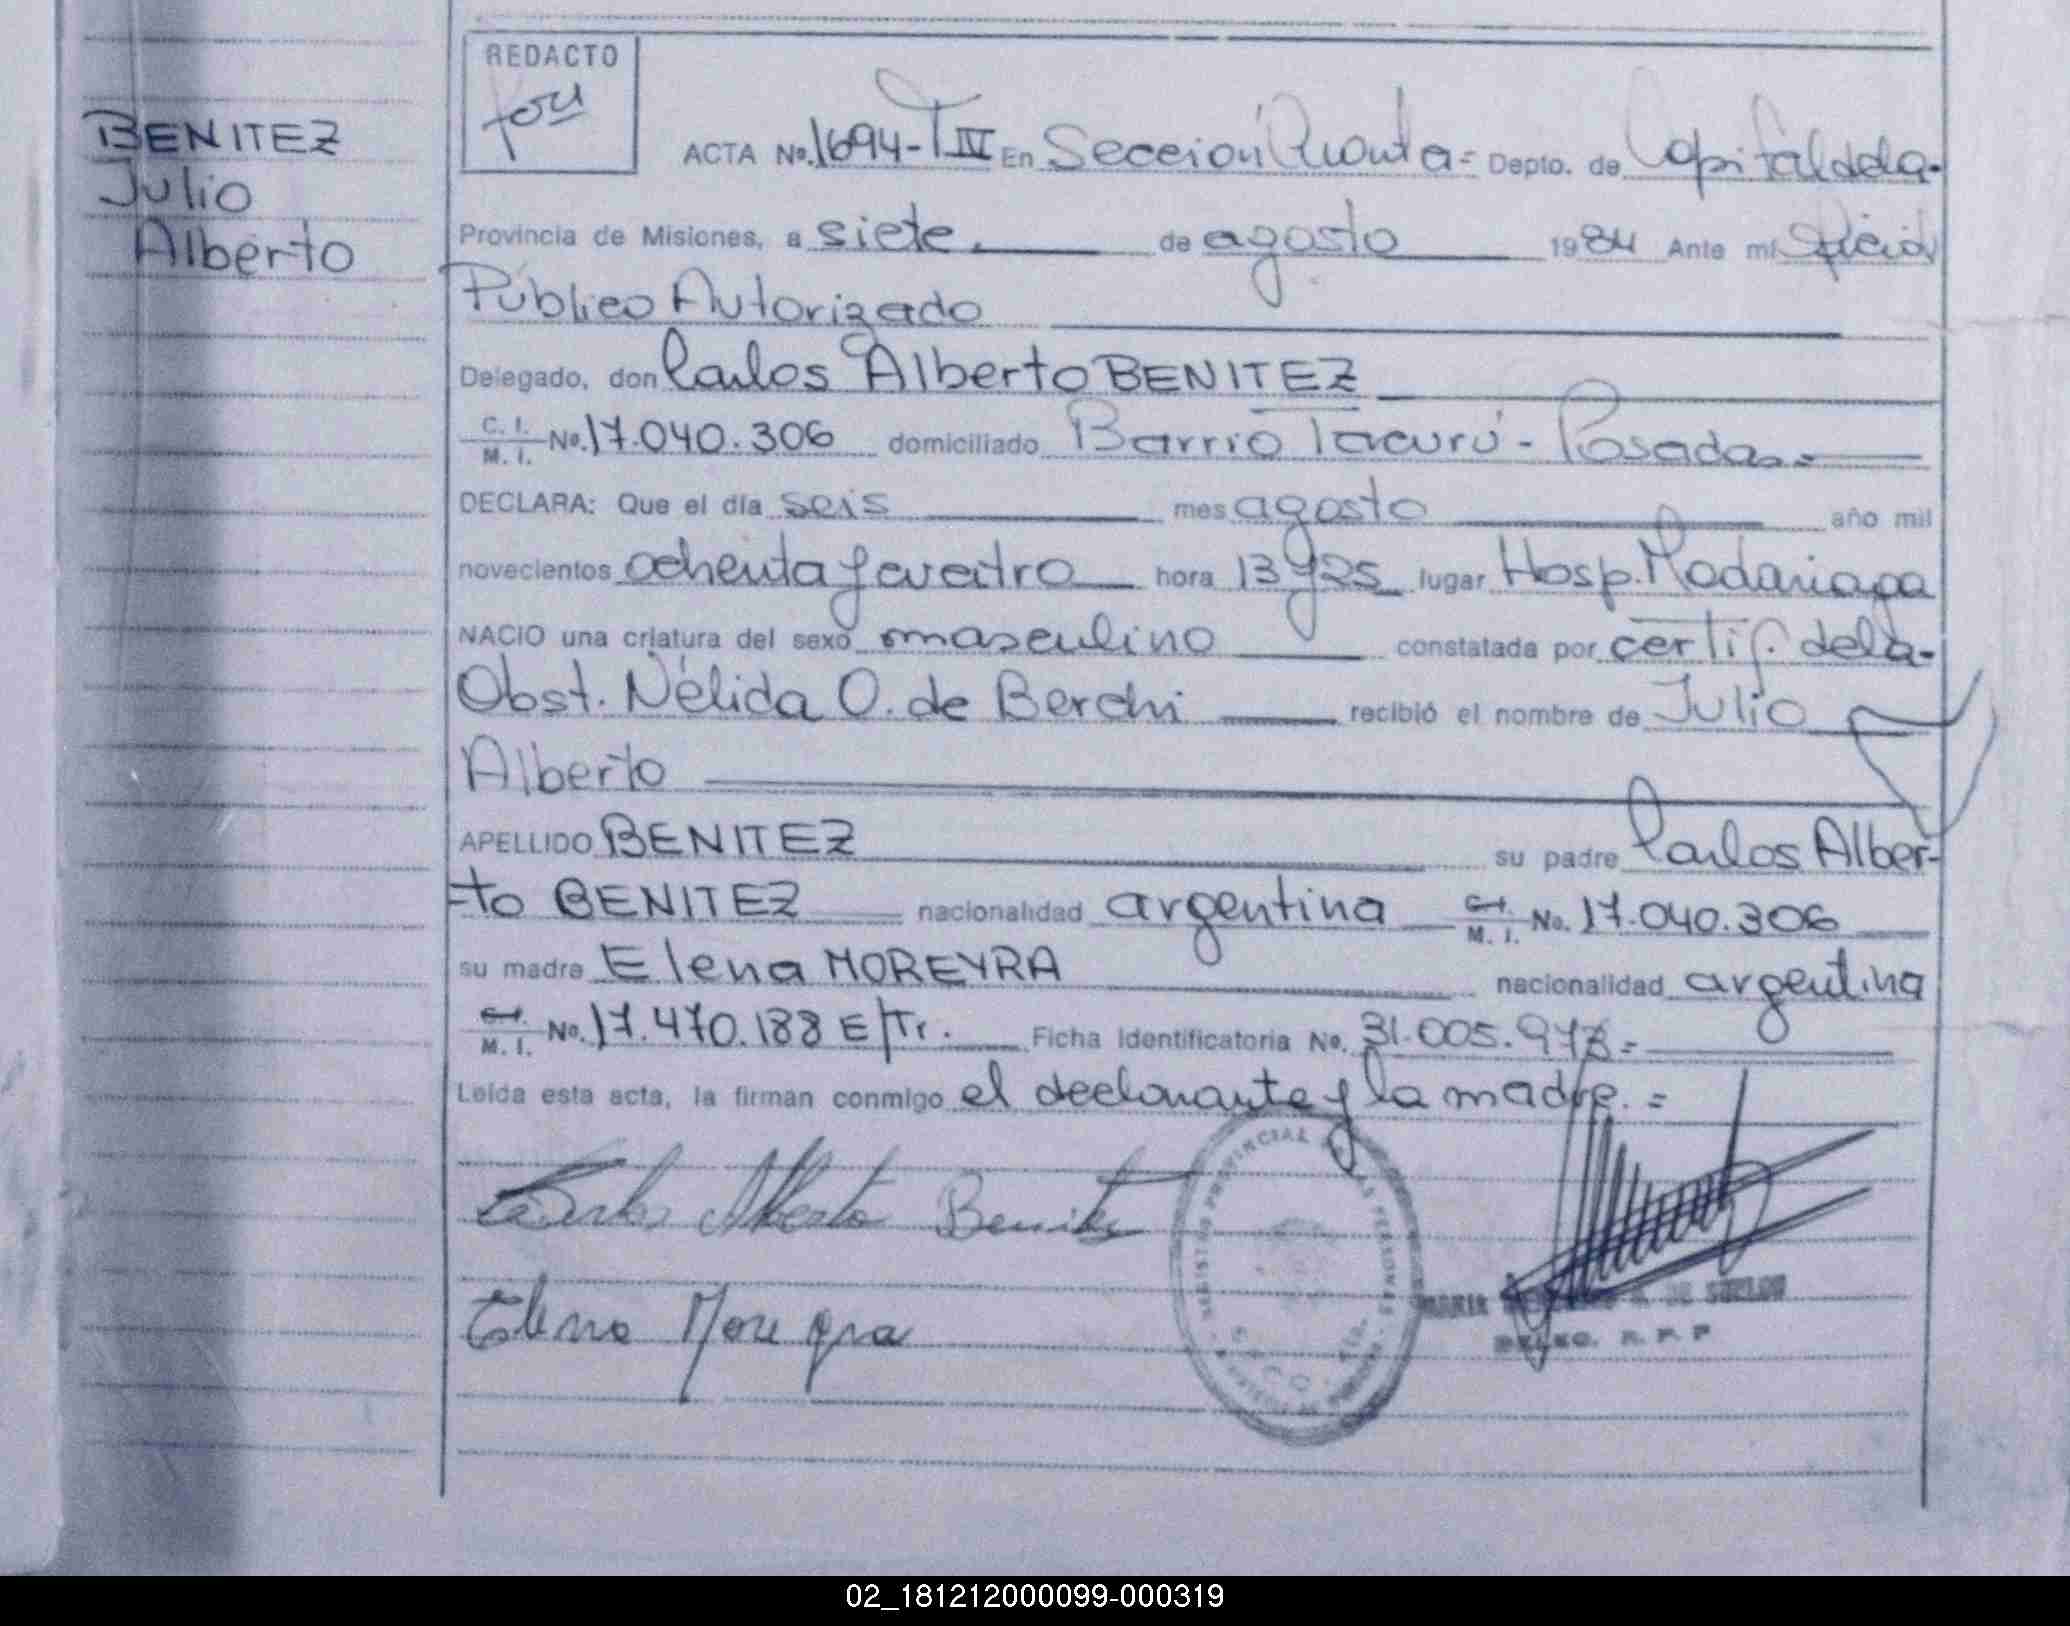 BENITEZ
Julio
Alberto
REDACTO
ACTA No. 1694-TIV En Sección Quinta= Depto. de Capital de la-
Provincia de Misiones, a siete de agosto 1984 Ante mí Oficial
Público Autorizado
Delegado, don Carlos Alberto BENITEZ
C. I.
M. I. No. 17.040.306 domiciliado Barrio Tacurú - Posadas.=
DECLARA: Que el día seis mes agosto año mil
novecientos ochenta y cuatro hora 13 y 25 lugar Hosp. Madariaga
NACIO una criatura del sexo masculino constatada por certif. de la-
Obst. Nélida O. de Berchi recibió el nombre de Julio
Alberto
APELLIDO BENITEZ su padre Carlos Alber-
-to BENITEZ nacionalidad argentina C.I.
M. I. No. 17.040.306
su madre Elena MOREYRA nacionalidad argentina
C.I.
M. I. No. 17.470.188 E/Tr. Ficha Identificatoria No. 31.005.973=
Leída esta acta, la firman conmigo el declarante y la madre.=
Carlos Alberto Benitez
Elena Moreyra
REGISTRO PROVINCIAL DE LAS PERSONAS
MARIA DE
DELEG. R. P. P
02_181212000099-000319